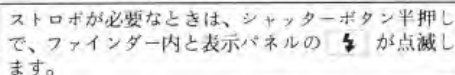 ストロボが必要なときは、シャッターボタン半押し
で、ファインダー内と表示パネルの ⚡ が点滅し
ます。